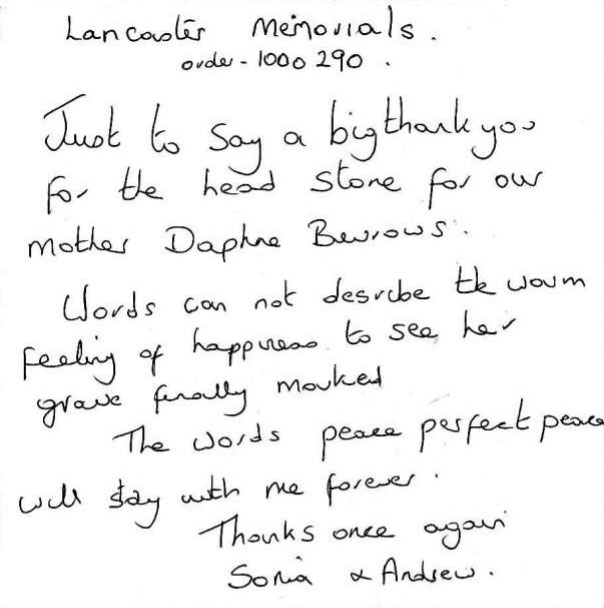 Lancaster Memorials.
order - 1000 290.
Just to Say a big thank you
for the head Stone for our
Mother Daphne Burrows.
Words can not desrcbe the warm
feeling of happiness to see her
grave finally marked
The words peace perfect peace
will stay with me forever.
Thanks once again
Sonia & Andrew.